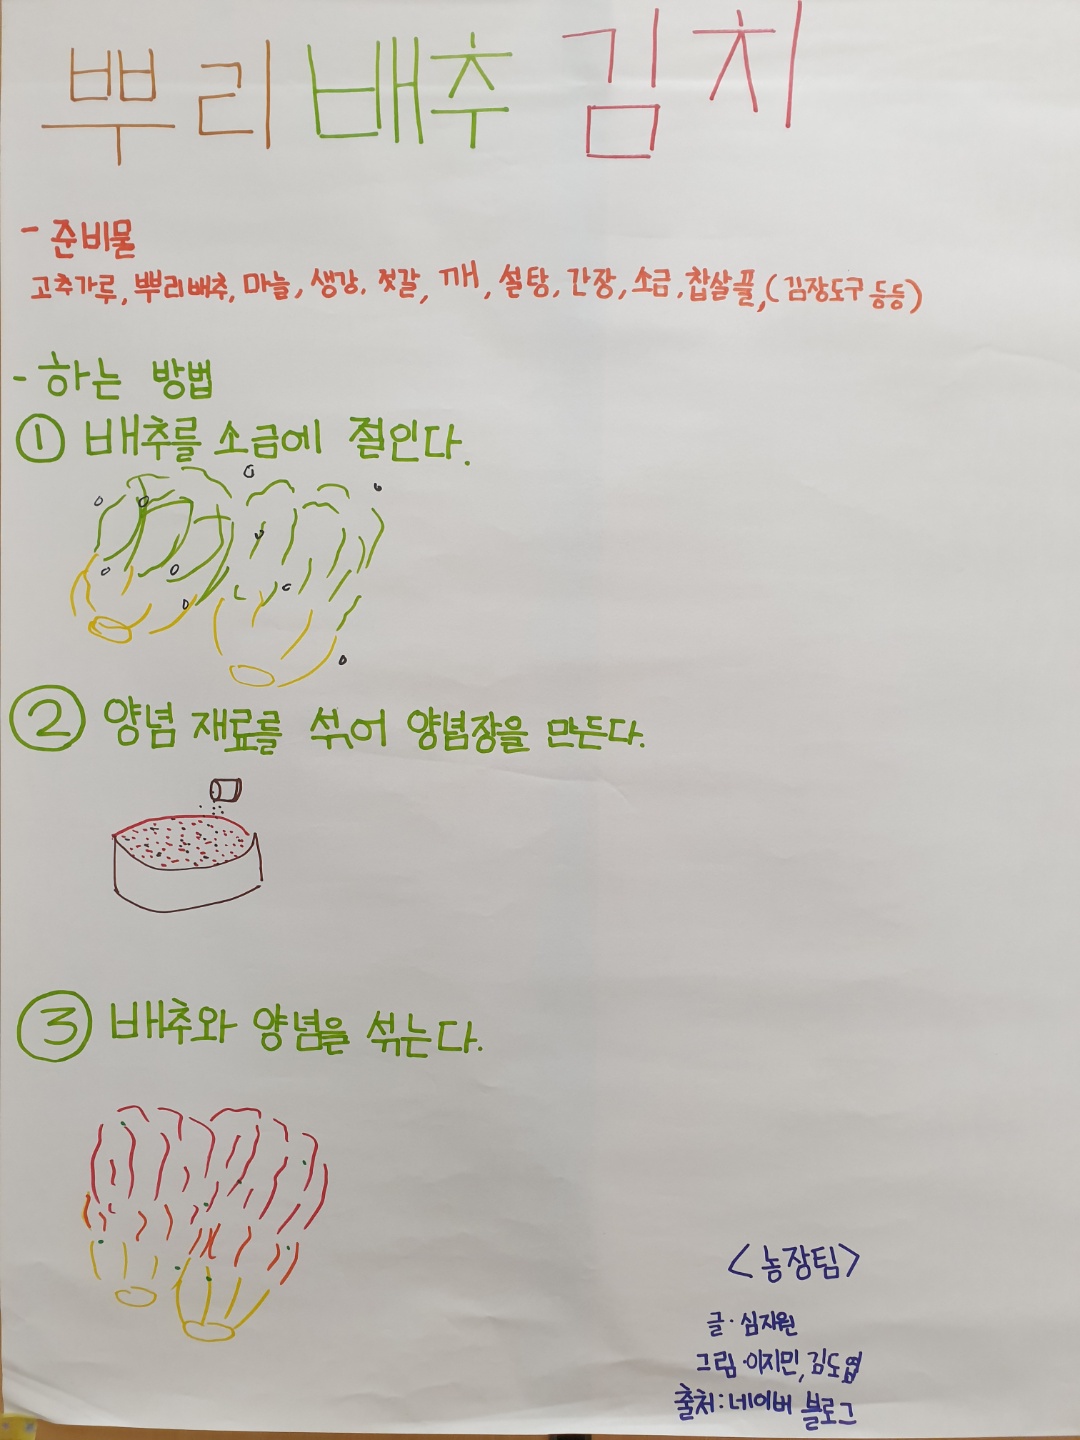 뿌리 배추 김치
- 준비물
고추가루, 뿌리배추, 마늘, 생강, 젓갈, 깨, 설탕, 간장, 소금, 찹쌀풀, (김장도구 등등)
- 하는 방법
① 배추를 소금에 절인다.
② 양념 재료를 섞어 양념장을 만든다.
③ 배추와 양념을 섞는다.
<농장팀>
글·심지원
그림·이지민, 김도엽
출처:네이버 블로그